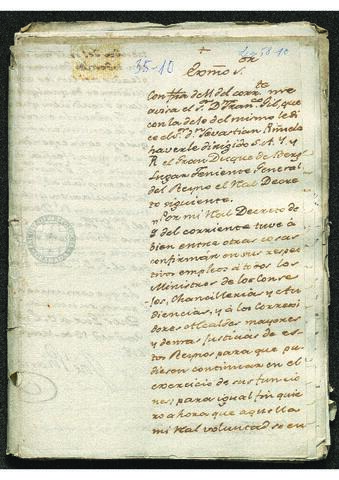 35-10
Leg 58-10
Exmo Sr.
Con fha de 11 del corrte me
avisa el Sr. Dn Franco Gil, que
con la de 10 del mismo le di
ce el Sr. Dn Sevastian Piñuela
haverle dirigido S. A. Y. y
R. el Gran Duque de Berg
Lugar Teniente General
del Reyno el Real Decre
to siguiente.
Por mi Real Decreto de
del corriente tuve á
bien entre otras cosas
confirmar en sus respec
tivos empleos á todos los
Ministros de los Conse
jos, Chancillerias y Au
diencias, y á los Corregi
dores Alcaldes mayores
y demas Justicias de es
tos Reynos para que pu
diesen continuar en el
exercicio de sus funcio
nes; para igual fin quie
ro ahora que aquella
mi Real voluntad se en